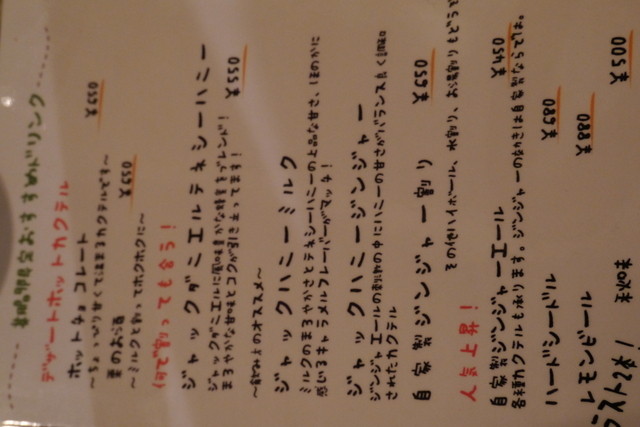 おすすめドリンク
デザートホットカクテル
ホットチョコレート ¥650
〜ちょっぴり甘くて温まるカクテルです〜
栗のお酒 ¥650
〜ミルクと割ってホクホクに〜
何で割っても合う!
ジャックダニエルテネシーハニー ¥550
ジャックダニエルに風味豊かな蜂蜜をブレンド!
まろやかな甘味とコクが引き立ってます!
〜飲み方のオススメ〜
ジャックハニーミルク
ミルクのまろやかさとテネシーハニーの上品な甘さ、ほのかに
感じるキャラメルフレーバーがマッチ!
ジャックハニージンジャー
ジンジャエールの刺激の中にハニーの甘さがバランス良く調和
されたカクテル
自家製ジンジャー割り ¥650
その他ハイボール、水割り、お湯割りもどうぞ
人気上昇!
自家製ジンジャーエール ¥450
各種カクテルも承ります。ジンジャーの辛さは自家製ならでは。
ハードシードル ¥680
レモンビール ¥880
ラスト2本! ¥500